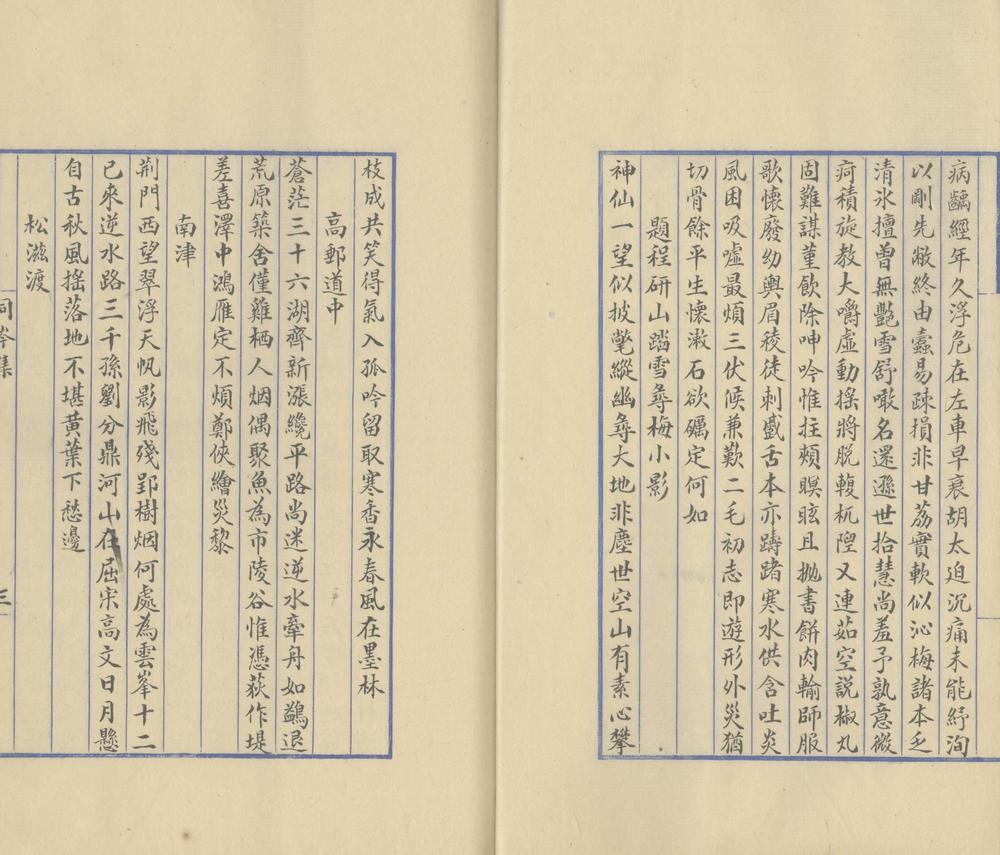 病齲經年久浮危在左車早衰胡太迫沉痛未能紓洵
以剛先敝終由蠹易疎損非甘荔實軟似沁梅諸本乏
清氷擅曾無艷雪舒噉名還遜世拾慧尚羞予孰意微
疴積旋教大嚼虛動搖將脫輹杌隉又連茹空説椒丸
固難謀堇飲除呻吟惟拄頰瞑眩且抛書餅肉輸師服
歌懷廢幼輿眉稜徒刺戱舌本亦躊躇寒水供含吐炎
風困吸噓最煩三伏候兼歎二毛初志即遊形外災猶
切骨餘平生懷漱石欲礪定何如
題程研山踏雪尋梅小影
神仙一望似披氅縱幽尋大地非塵世空山有素心攀
枝成共笑得氣入孤吟留取寒香永春風在墨林
高郵道中
蒼茫三十六湖齊新漲纔平路尚迷逆水牽舟如鷁退
荒原築舍僅雞栖人烟偶聚魚為市陵谷惟憑荻作堤
差喜澤中鴻雁定不煩鄭俠繪災黎
南津
荆門西望翠浮天帆影飛殘郢樹烟何處為雲峯十二
已來逆水路三千孫劉分鼎河山在屈宋高文日月懸
自古秋風揺落地不堪黄葉下愁邊
松滋渡
同岑集
三